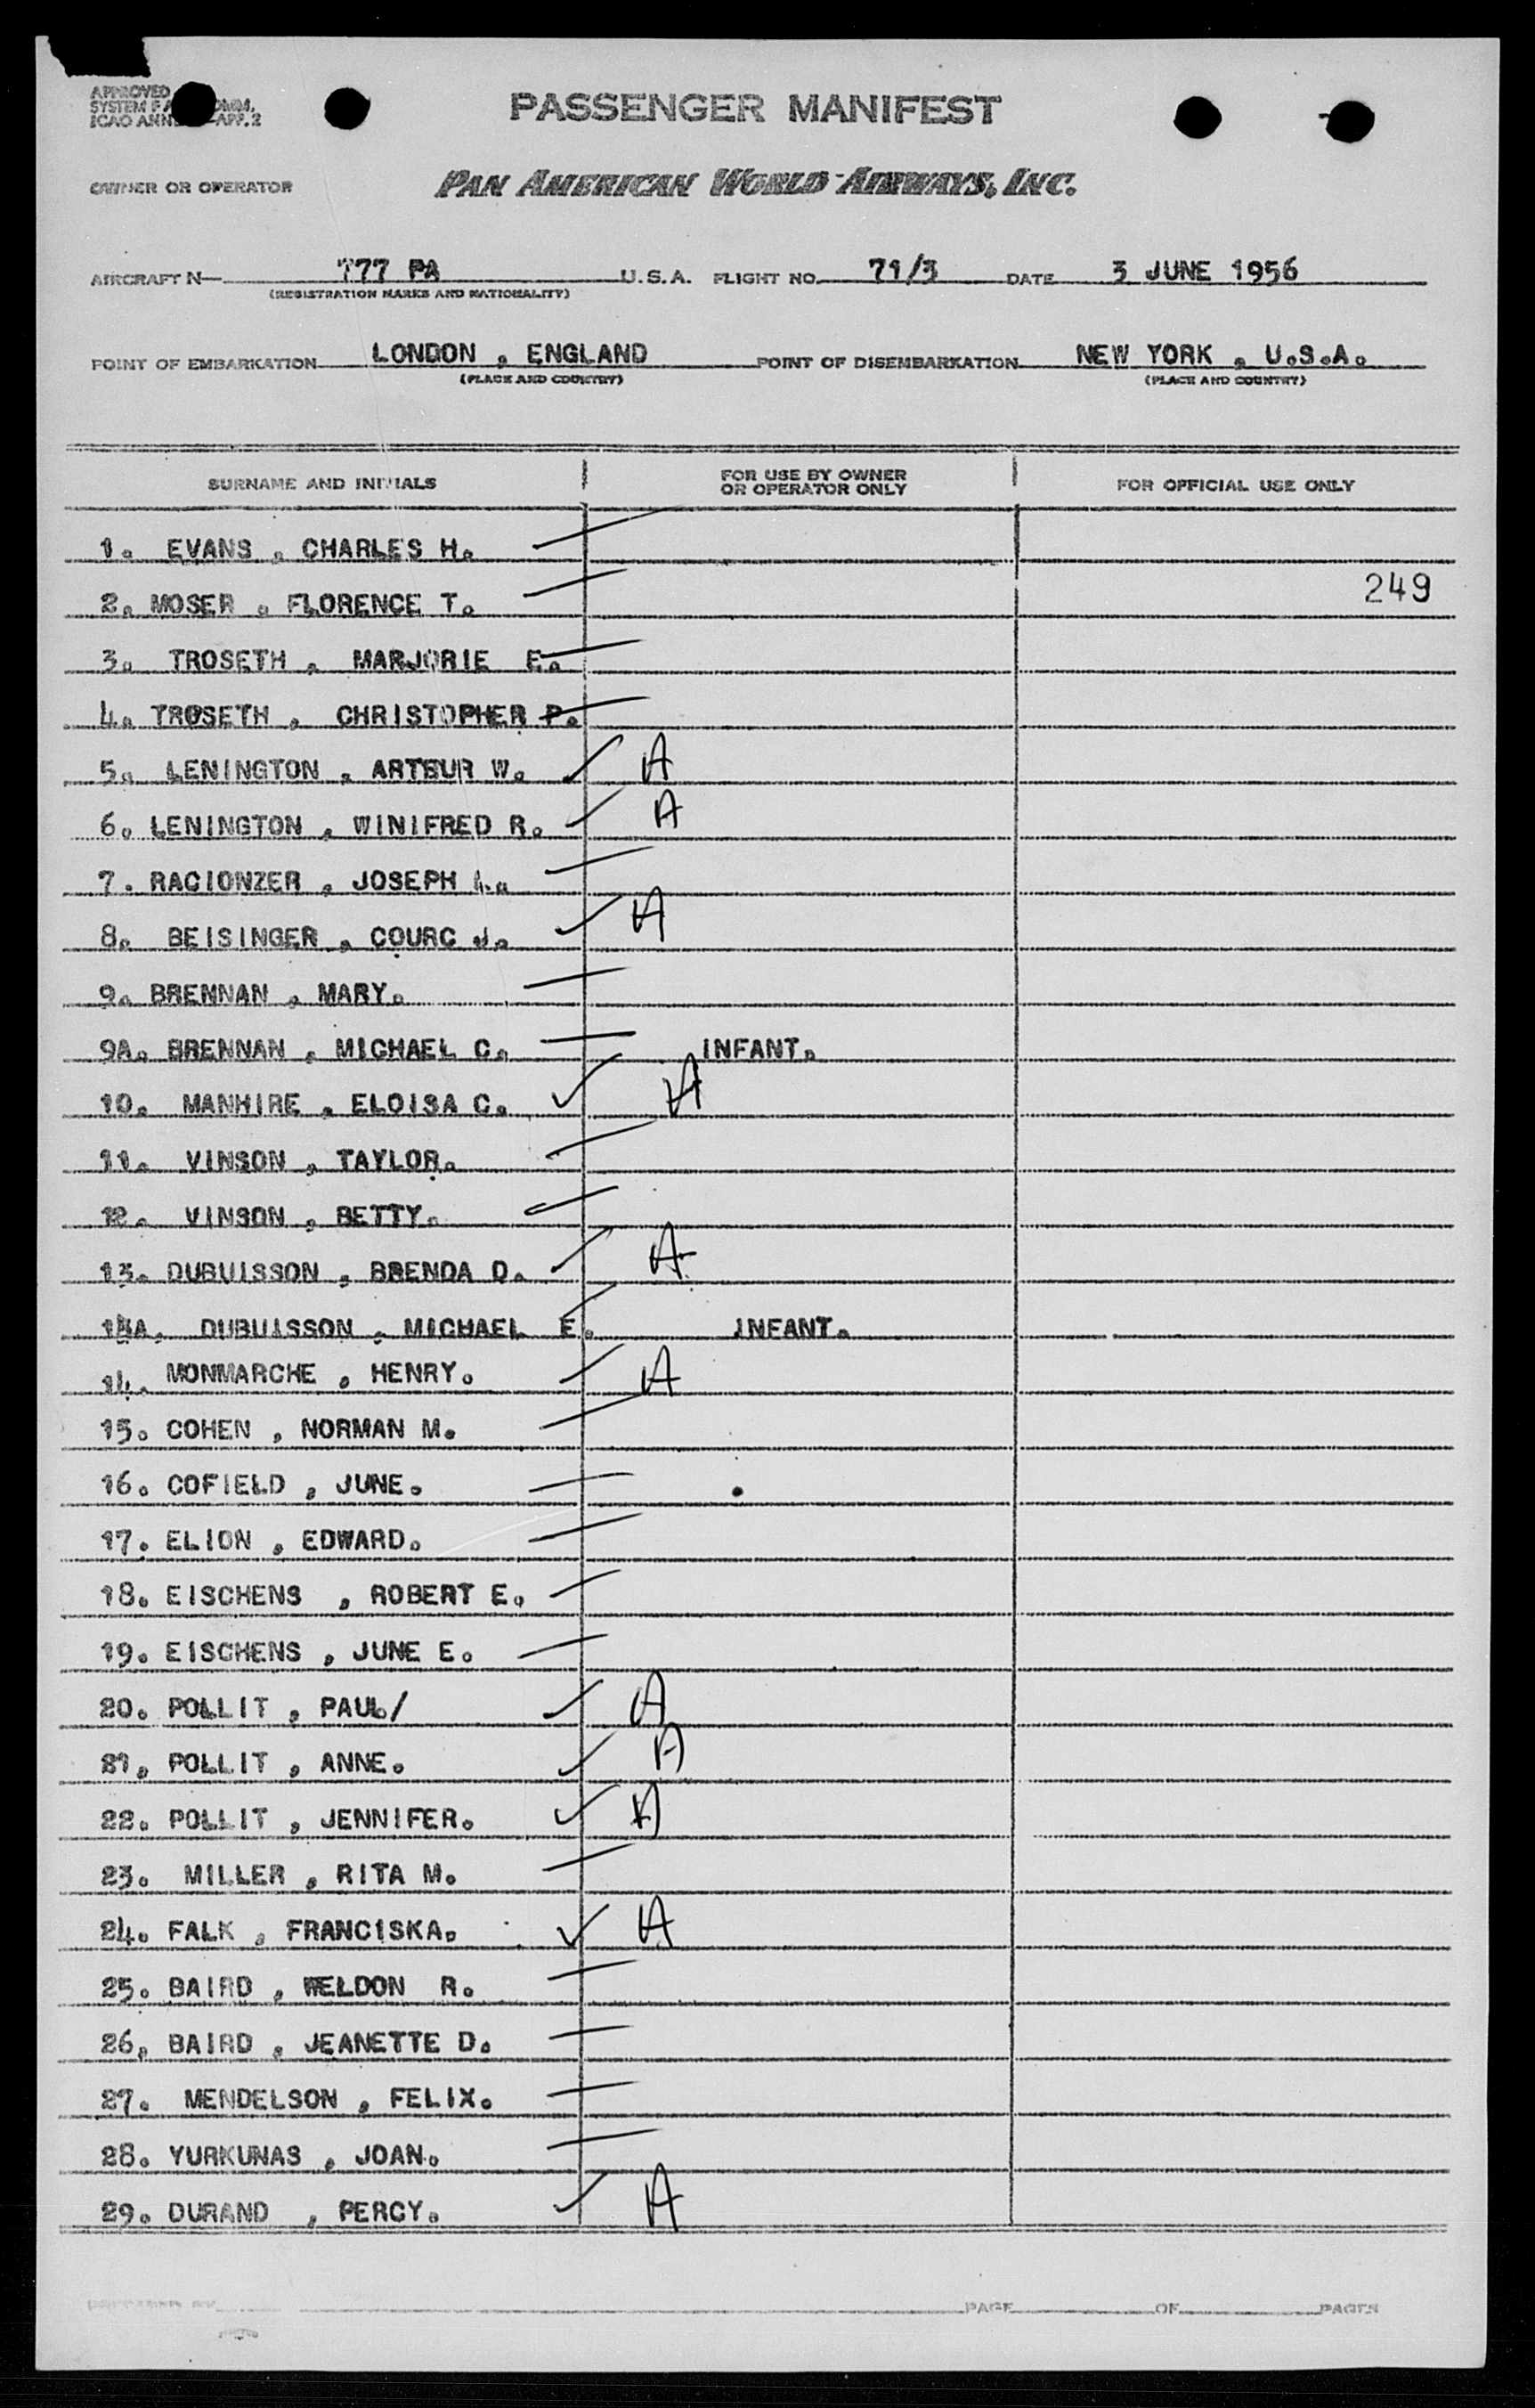 APPROVED
SYSTEM F A COMM.
ICAO ANN APP. 2
PASSENGER MANIFEST
OWNER OR OPERATOR PAN AMERICAN WORLD AIRWAYS, INC.
AIRCRAFT N— 777 PA U.S.A. FLIGHT NO. 71/3 DATE 3 JUNE 1956
(REGISTRATION MARKS AND NATIONALITY)
POINT OF EMBARKATION LONDON , ENGLAND POINT OF DISEMBARKATION NEW YORK , U.S.A.
(PLACE AND COUNTRY) (PLACE AND COUNTRY)
SURNAME AND INITIALS FOR USE BY OWNER OR OPERATOR ONLY FOR OFFICIAL USE ONLY
1. EVANS , CHARLES H.
2. MOSER , FLORENCE T. 249
3. TROSETH , MARJORIE E.
4. TROSETH , CHRISTOPHER P.
5. LENINGTON , ARTBUR W. ✓ A
6. LENINGTON , WINIFRED R. ✓ A
7. RACIONZER , JOSEPH
8. BEISINGER , COURC J. ✓ A
9. BRENNAN , MARY.
9A. BRENNAN , MICHAEL C. INFANT.
10. MANHIRE , ELOISA C. ✓ A
11. VINSON , TAYLOR.
12. VINSON , BETTY.
13. DUBUISSON , BRENDA D. ✓ A
13A. DUBUISSON , MICHAEL E. INFANT.
14. MONMARCHE , HENRY. ✓ A
15. COHEN , NORMAN M.
16. COFIELD , JUNE.
17. ELION , EDWARD.
18. EISCHENS , ROBERT E.
19. EISCHENS , JUNE E.
20. POLLIT , PAUL/ ✓ A
21. POLLIT , ANNE. ✓ A
22. POLLIT , JENNIFER. ✓ A
23. MILLER , RITA M.
24. FALK , FRANCISKA. ✓ A
25. BAIRD , WELDON R.
26. BAIRD , JEANETTE D.
27. MENDELSON , FELIX.
28. YURKUNAS , JOAN.
29. DURAND , PERCY. ✓ A
PAGE OF PAGES